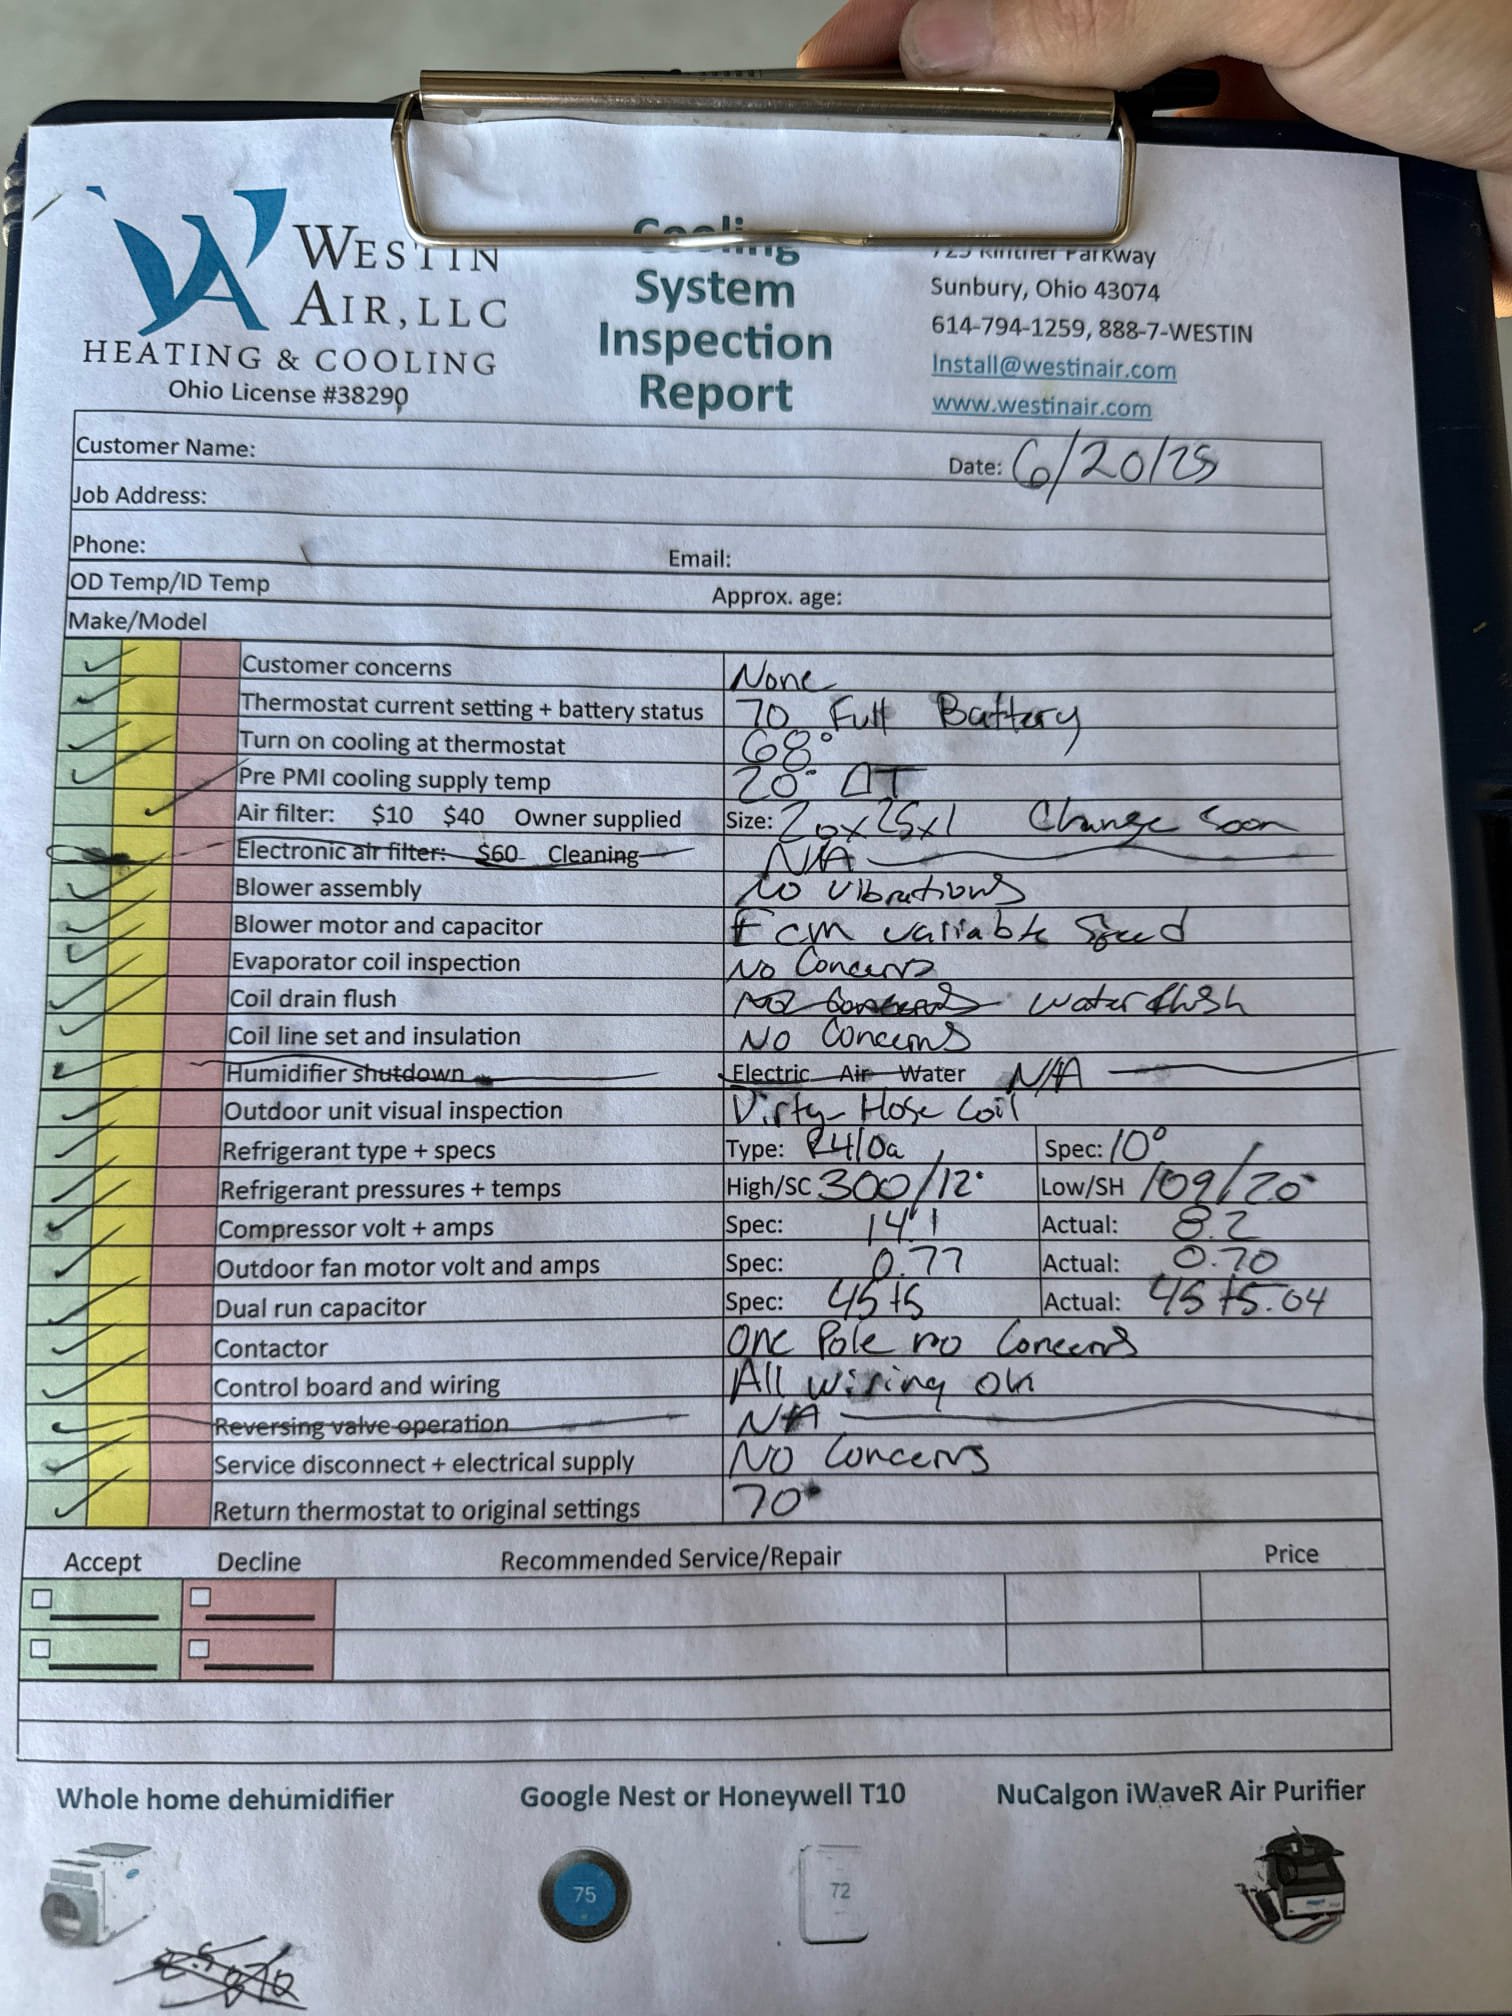 WESTIN
AIR, LLC
HEATING & COOLING
Ohio License #38290
Cooling
System
Inspection
Report
Parkway
Sunbury, Ohio 43074
614-794-1259, 888-7-WESTIN
Install@westinair.com
www.westinair.com
Customer Name: Date: 6/20/25
Job Address:
Phone: Email:
OD Temp/ID Temp Approx. age:
Make/Model
Customer concerns None
Thermostat current setting + battery status 70 Full Battery
Turn on cooling at thermostat 68°
Pre PMI cooling supply temp 20° ΔT
Air filter: $10 $40 Owner supplied Size: 20x25x1 Change Soon
Electronic air filter: $60 Cleaning N/A
Blower assembly No vibrations
Blower motor and capacitor Ecm variable Speed
Evaporator coil inspection No Concerns
Coil drain flush No Concerns water flush
Coil line set and insulation No Concerns
Humidifier shutdown Electric Air Water N/A
Outdoor unit visual inspection Dirty - Hose Coil
Refrigerant type + specs Type: R410a Spec: 10°
Refrigerant pressures + temps High/SC 300/12° Low/SH 109/20°
Compressor volt + amps Spec: 14.1 Actual: 8.2
Outdoor fan motor volt and amps Spec: 0.77 Actual: 0.70
Dual run capacitor Spec: 45+5 Actual: 45+5.04
Contactor One Pole no Concerns
Control board and wiring All wiring ok
Reversing valve operation N/A
Service disconnect + electrical supply No Concerns
Return thermostat to original settings 70°
Accept Decline Recommended Service/Repair Price
Whole home dehumidifier Google Nest or Honeywell T10 NuCalgon iWaveR Air Purifier
75 72